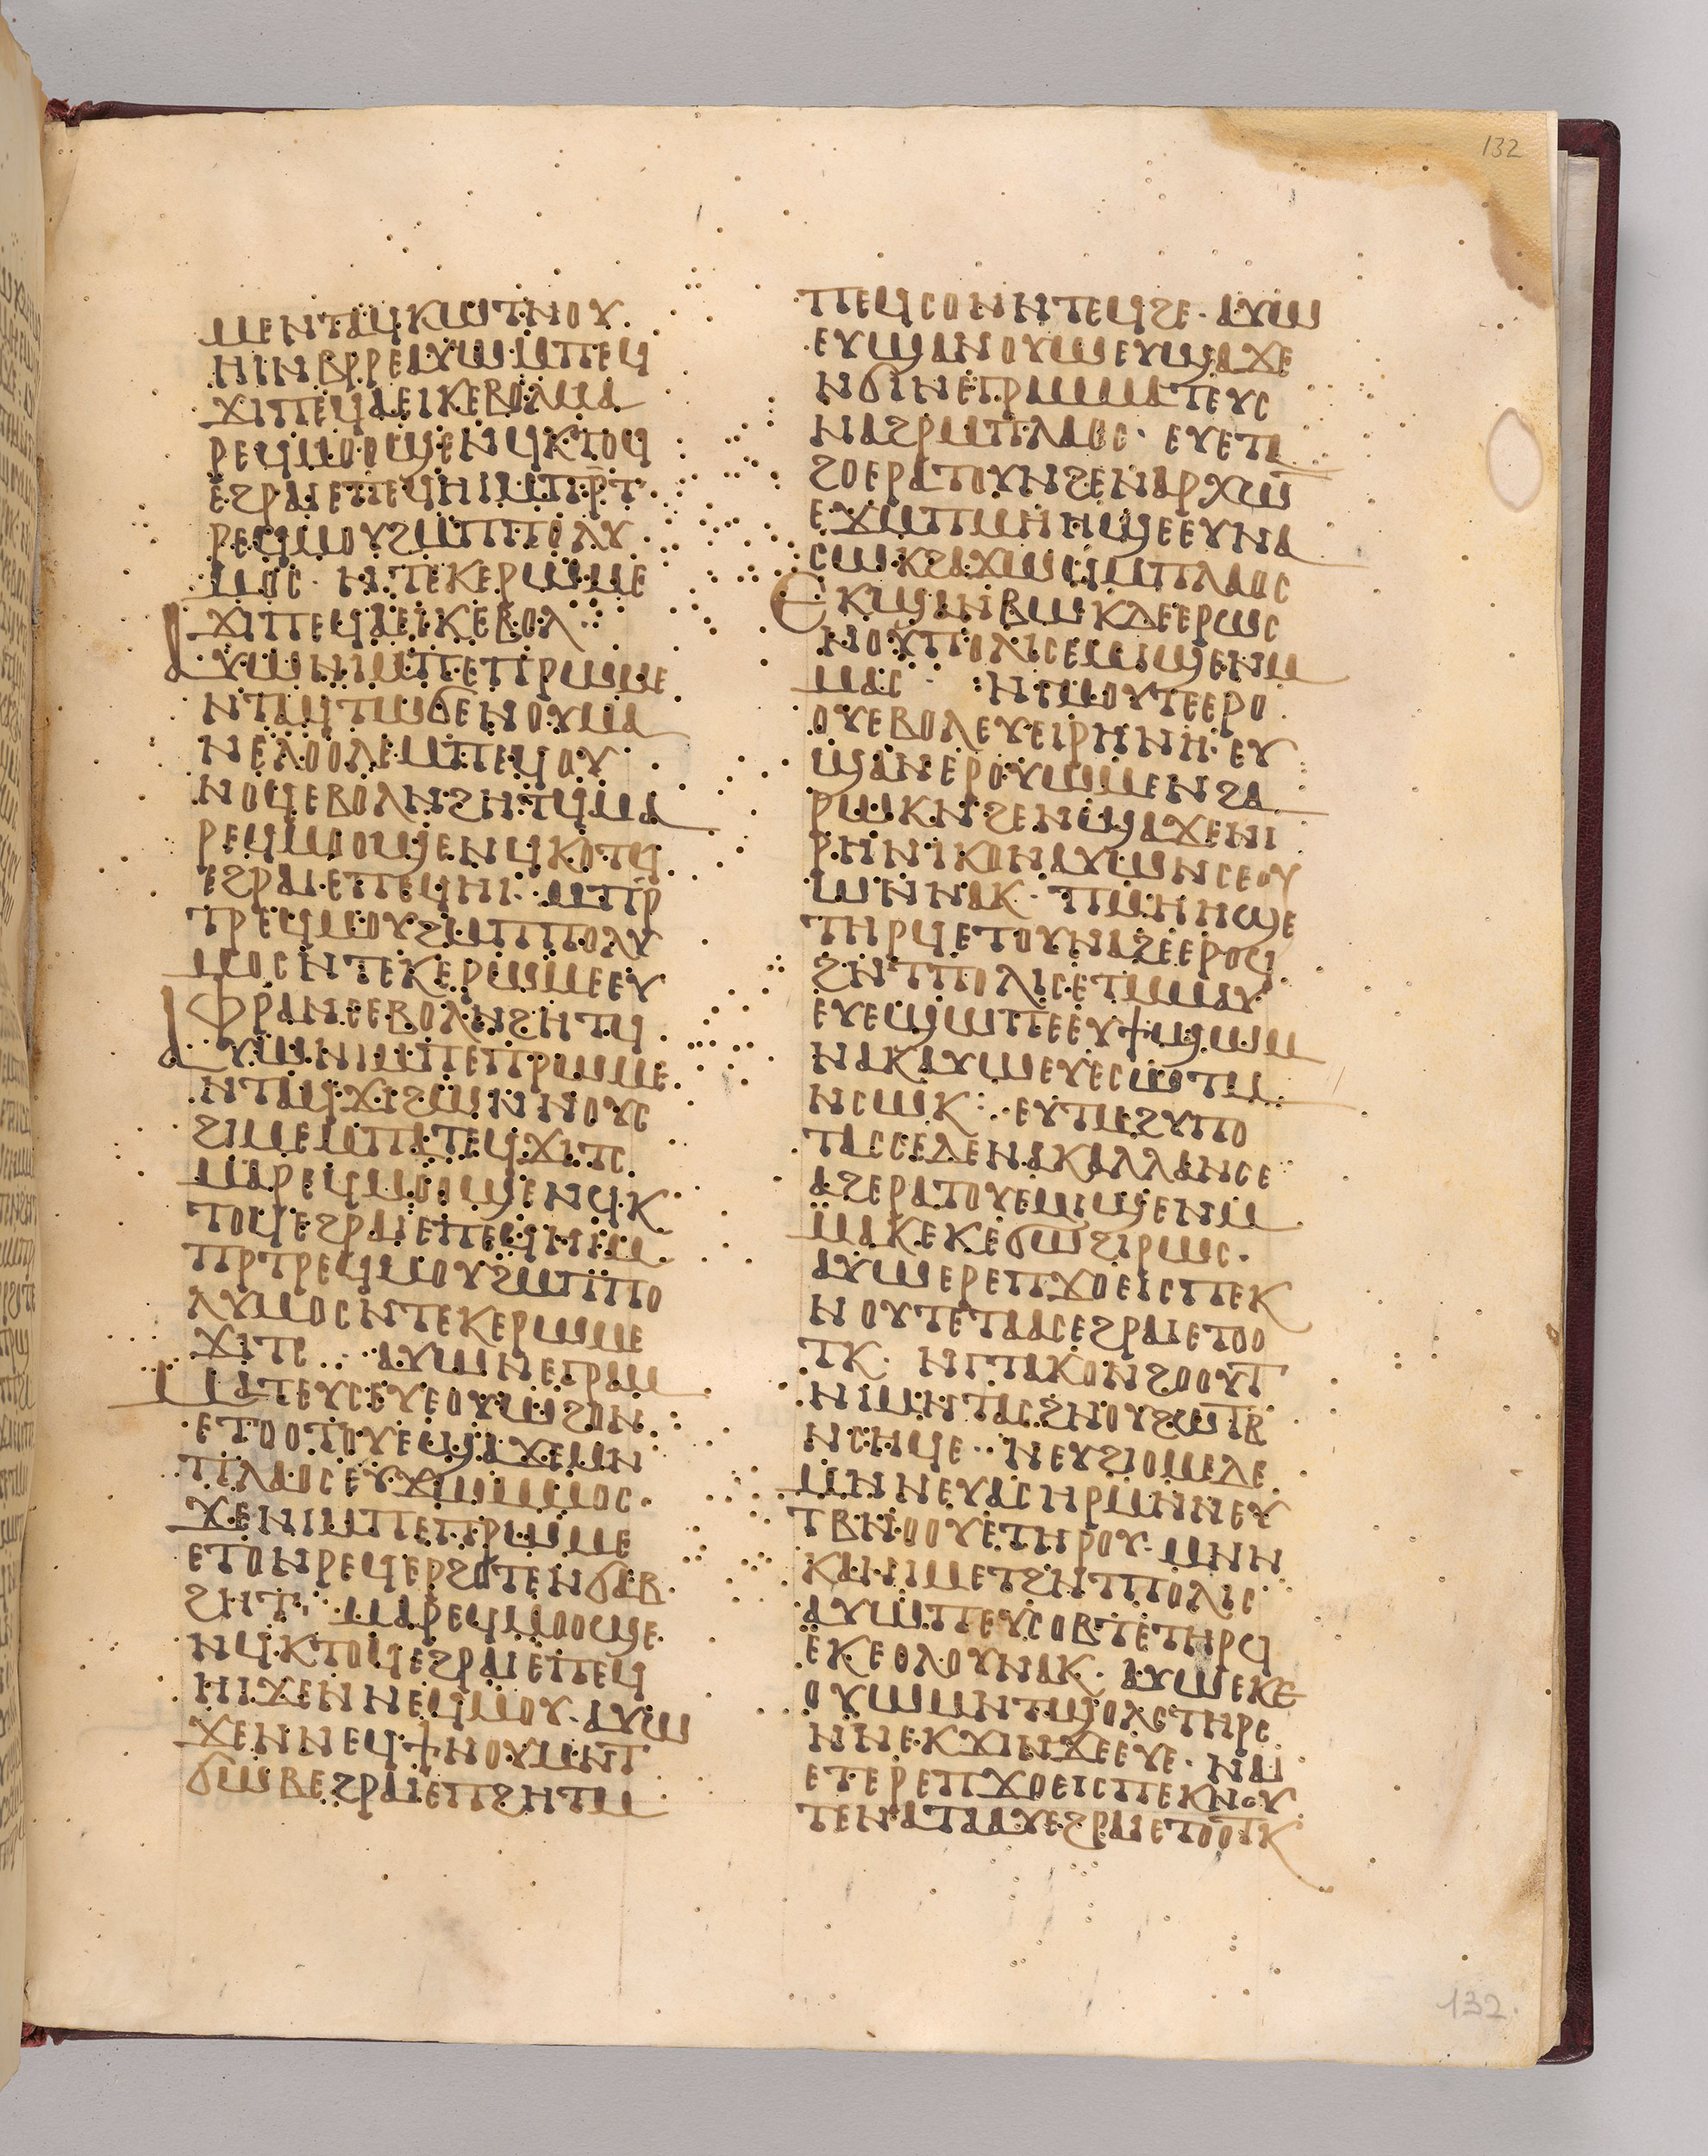 132
ⲙⲉⲛⲧⲁϥⲕⲱⲧⲛⲟⲩ
ⲏⲓⲛⲃⲣⲣⲉⲁⲩⲱⲙⲡⲉϥ
ϫⲓⲡⲉϥⲁⲉⲓⲕⲉⲃⲟⲗⲙⲁ
ⲣⲉϥⲙⲟⲟϣⲉⲛϥⲕⲧⲟϥ
ⲉϩⲣⲁⲓⲉⲡⲉϥⲏⲓⲙⲡⲣⲧ
ⲣⲉϥⲙⲟⲩϩⲙⲡⲡⲟⲗⲩ
ⲙⲟⲥ· ⲛⲧⲉⲕⲉⲣⲱⲙⲉ
ϫⲓⲡⲉϥⲁⲉⲓⲕⲉⲃⲟⲗ
ⲁⲩⲱⲛⲓⲙⲡⲉⲡⲣⲱⲙⲉ
ⲛⲧⲁϥⲧⲱϭⲉⲛⲟⲩⲙⲁ
ⲛⲉⲗⲟⲟⲗⲉⲙⲡⲉϥⲟⲩ
ⲛⲟϥⲉⲃⲟⲗⲛϩⲏⲧϥⲙⲁ
ⲣⲉϥⲙⲟⲟϣⲉⲛϥⲕⲟⲧϥ
ⲉϩⲣⲁⲓⲉⲡⲉϥⲏⲓ· ⲙⲡⲣ
ⲧⲣⲉϥⲙⲟⲩϩⲙⲡⲡⲟⲗⲩ
ⲙⲟⲥⲛⲧⲉⲕⲉⲣⲱⲙⲉⲉⲩ
ⲫⲣⲁⲛⲉⲉⲃⲟⲗⲛϩⲏⲧϥ
ⲁⲩⲱⲛⲓⲙⲡⲉⲡⲣⲱⲙⲉ
ⲛⲧⲁϥϫⲓϩⲱⲛⲛⲟⲩⲥ
ϩⲓⲙⲉⲙⲡⲁⲧⲉϥϫⲓⲧⲥ
ⲙⲁⲣⲉϥⲙⲟⲟϣⲉⲛϥⲕ
ⲧⲟϥⲉϩⲣⲁⲓⲉⲡⲉϥⲏⲓⲙ
ⲡⲣⲧⲣⲉϥⲙⲟⲩϩⲙⲡⲡⲟ
ⲗⲩⲙⲟⲥⲛⲧⲉⲕⲉⲣⲱⲙⲉ
ϫⲓⲧⲥ ⲁⲩⲱⲛⲉⲅⲣⲁⲙ
ⲙⲁⲧⲉⲩⲥⲉⲩⲉⲟⲩⲱϩⲟⲛ
ⲉⲧⲟⲟⲧⲟⲩⲉϣⲁϫⲉⲙⲛ
ⲡⲗⲁⲟⲥⲉⲩϫⲱⲙⲙⲟⲥ·
ϫⲉⲛⲓⲙⲡⲉⲡⲣⲱⲙⲉ
ⲉⲧⲟⲛⲣⲉϥⲉⲣϩⲟⲧⲉⲛϭⲁⲃ
ϩⲏⲧ· ⲙⲁⲣⲉϥⲙⲟⲟϣⲉ
ⲛϥⲕⲧⲟϥⲉϩⲣⲁⲓⲉⲡⲉϥ
ⲏⲓϫⲉⲛⲛⲉϥⲙⲟⲩ· ⲁⲩⲱ
ϫⲉⲛⲛⲉϥϯⲛⲟⲩⲙⲛⲧ
ϭⲱⲃⲉϩⲣⲁⲓⲉⲡϩⲏⲧⲙ
ⲡⲉϥⲥⲟⲛⲛⲧⲉϥϩⲉ· ⲁⲩⲱ
ⲉⲩϣⲁⲛⲟⲩⲱⲉⲩϣⲁϫⲉ
ⲛϭⲓⲛⲉⲅⲣⲁⲙⲙⲁⲧⲉⲩⲥ
ⲛⲁϩⲣⲙⲡⲗⲁⲟⲥ· ⲉⲩⲉⲧⲁ
ϩⲟⲉⲣⲁⲧⲟⲩⲛϩⲉⲛⲁⲣⲭⲱ
ⲉϫⲙⲡⲙⲏⲏϣⲉⲉⲩⲛⲁ
ⲥⲱⲕϩⲁϫⲱϥⲙⲡⲗⲁⲟⲥ
ⲉⲕϣⲁⲛⲃⲱⲕⲇⲉⲉⲣⲱⲥ
ⲛⲟⲩⲡⲟⲗⲓⲥⲉⲙⲓϣⲉⲛⲙ
ⲙⲁⲥ· ⲛⲅⲙⲟⲩⲧⲉⲉⲣⲟ
ⲟⲩⲉⲃⲟⲗⲉⲩⲉⲓⲣⲏⲛⲏ· ⲉⲩ
ϣⲁⲛⲉⲣⲟⲩⲱⲙⲉⲛϩⲁ
ⲣⲱⲕⲛϩⲉⲛϣⲁϫⲉⲛⲓ
ⲣⲏⲛⲓⲕⲟⲛⲁⲩⲱⲛⲥⲉⲟⲩ
ⲱⲛⲛⲁⲕ· ⲡⲙⲏⲏϣⲉ
ⲧⲏⲣϥⲉⲧⲟⲩⲛⲁϩⲉⲉⲣⲟϥ
ϩⲛⲧⲡⲟⲗⲓⲥⲉⲧⲙⲙⲁⲩ
ⲉⲩⲉϣⲱⲡⲉⲉⲩϯϣⲱⲙ
ⲛⲁⲕⲁⲩⲱⲉⲩⲉⲥⲱⲧⲙ
ⲛⲥⲱⲕ: ⲉⲩⲧⲙϩⲩⲡⲟ
ⲧⲁⲥⲥⲉⲇⲉⲛⲁⲕⲁⲗⲗⲁⲛⲥⲉ
ⲁϩⲉⲣⲁⲧⲟⲩⲉⲙⲓϣⲉⲛⲙ
ⲙⲁⲕⲉⲕⲉϭⲱϩⲓⲣⲱⲥ·
ⲁⲩⲱⲉⲣⲉⲡϫⲟⲉⲓⲥⲡⲉⲕ
ⲛⲟⲩⲧⲉⲧⲁⲁⲥⲉϩⲣⲁⲓⲉⲧⲟⲟ
ⲧⲕ· ⲛⲅⲡⲁⲕⲟⲛϩⲟⲟⲩⲧ
ⲛⲓⲙⲛⲧⲁⲥϩⲛⲟⲩϩⲱⲧⲃ
ⲛⲥⲏϥⲉ·· ⲛⲉⲩϩⲓⲟⲙⲉⲇⲉ
ⲙⲛⲛⲉⲩⲁⲥⲏⲣⲙⲛⲛⲉⲩ
ⲧⲃⲛⲟⲟⲩⲉⲧⲏⲣⲟⲩ· ⲙⲛⲛ
ⲕⲁⲛⲓⲙⲉⲧϩⲛⲧⲡⲟⲗⲓⲥ
ⲁⲩⲱⲡⲉⲩⲥⲟⲃⲧⲉⲧⲏⲣϥ
ⲉⲕⲉϣⲟⲗⲟⲩⲛⲁⲕ· ⲁⲩⲱⲉⲕⲉ
ⲟⲩⲱⲙⲛⲧϣⲟⲗⲥⲧⲏⲣⲥ
ⲛⲛⲉⲕϫⲓⲛϫⲉⲉⲩⲉ· ⲛⲁⲓ
ⲉⲧⲉⲣⲉⲡϫⲟⲉⲓⲥⲡⲉⲕⲛⲟⲩ
ⲧⲉⲛⲁⲧⲁⲁⲩⲉϩⲣⲁⲓⲉⲧⲟⲟⲧⲕ
132.